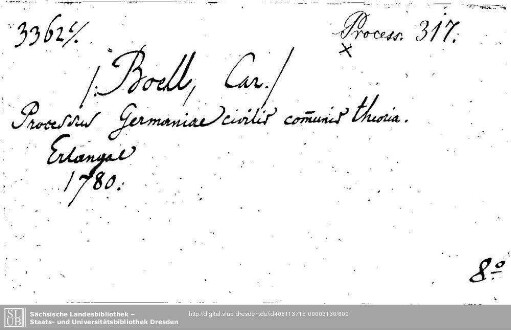 3362 c/.
Process. 317.
x
/. Boell, Car./
Processus Germaniae civilis com̄unis theoria.
Erlangae
1780.
8°
Sächsische Landesbibliothek –
Staats- und Universitätsbibliothek Dresden